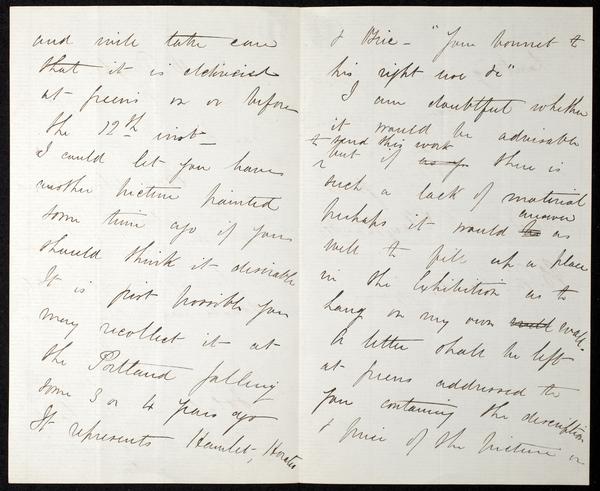 and will take care
that it is delivered
at green's on or before
the 12th inst-
I could let you have
another picture painted
some time ago if you
should think it desirable
It is just possible you
may recollect it at
the Portland Gallery
some 3 or 4 years ago
It represents Hamlet, Horatio
& Osric - "Your bonnet to
his right use &c"
I am doubtful whether
it would be advisable
to send this work
but if as yo there is
such a lack of material
perhaps it would answer as
well to fill up a place
in the Exhibition as to
hang on my own wall wall-
A letter shall be left
at greens addressed to
you containing the description
& price of the picture or